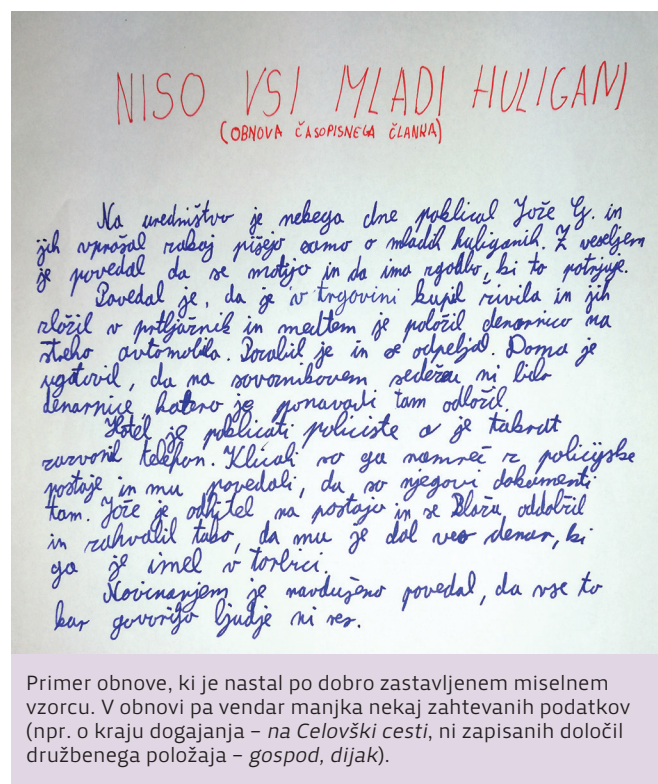 NISO VSI MLADI HULIGANI
(OBNOVA ČASOPISNEGA ČLANKA)
Na uredništvo je nekega dne poklical Jože G. in
jih vprašal zakaj pišejo samo o mladih huliganih. Z veseljem
je povedal da se motijo in da ima zgodbo, ki to potrjuje.
Povedal je, da je v trgovini kupil živila in jih
zložil v prtljažnik in medtem je položil denarnico na
streho avtomobila. Pozabil je in se odpeljal. Doma je
ugotovil, da na sovoznikovem sedežu ni bilo
denarnice, katero je ponavadi tam odložil.
Hotel je poklicati policiste a je takrat
zazvonil telefon. Klicali so ga namreč z policijske
postaje in mu povedali, da so njegovi dokumenti
tam. Jože je odhitel na postajo in se Blažu oddolžil
in zahvalil tako, da mu je dal ves denar, ki
ga je imel v torbici.
Novinarjem je navdušeno povedal, da vse to
kar govorijo ljudje ni res.
Primer obnove, ki je nastal po dobro zastavljenem miselnem
vzorcu. V obnovi pa vendar manjka nekaj zahtevanih podatkov
(npr. o kraju dogajanja – na Celovški cesti, ni zapisanih določil
družbenega položaja – gospod, dijak).